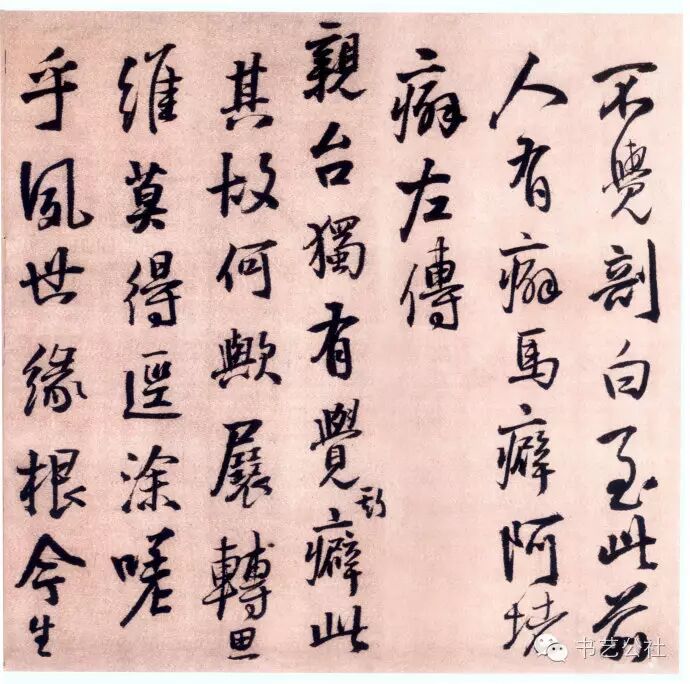 不覺剖白至此前
人有癖馬癖阿堵
癖左傳
親台獨有覺斯癖此
其故何歟展轉思
維莫得逕涂嗟
乎夙世緣根今生
书艺公社